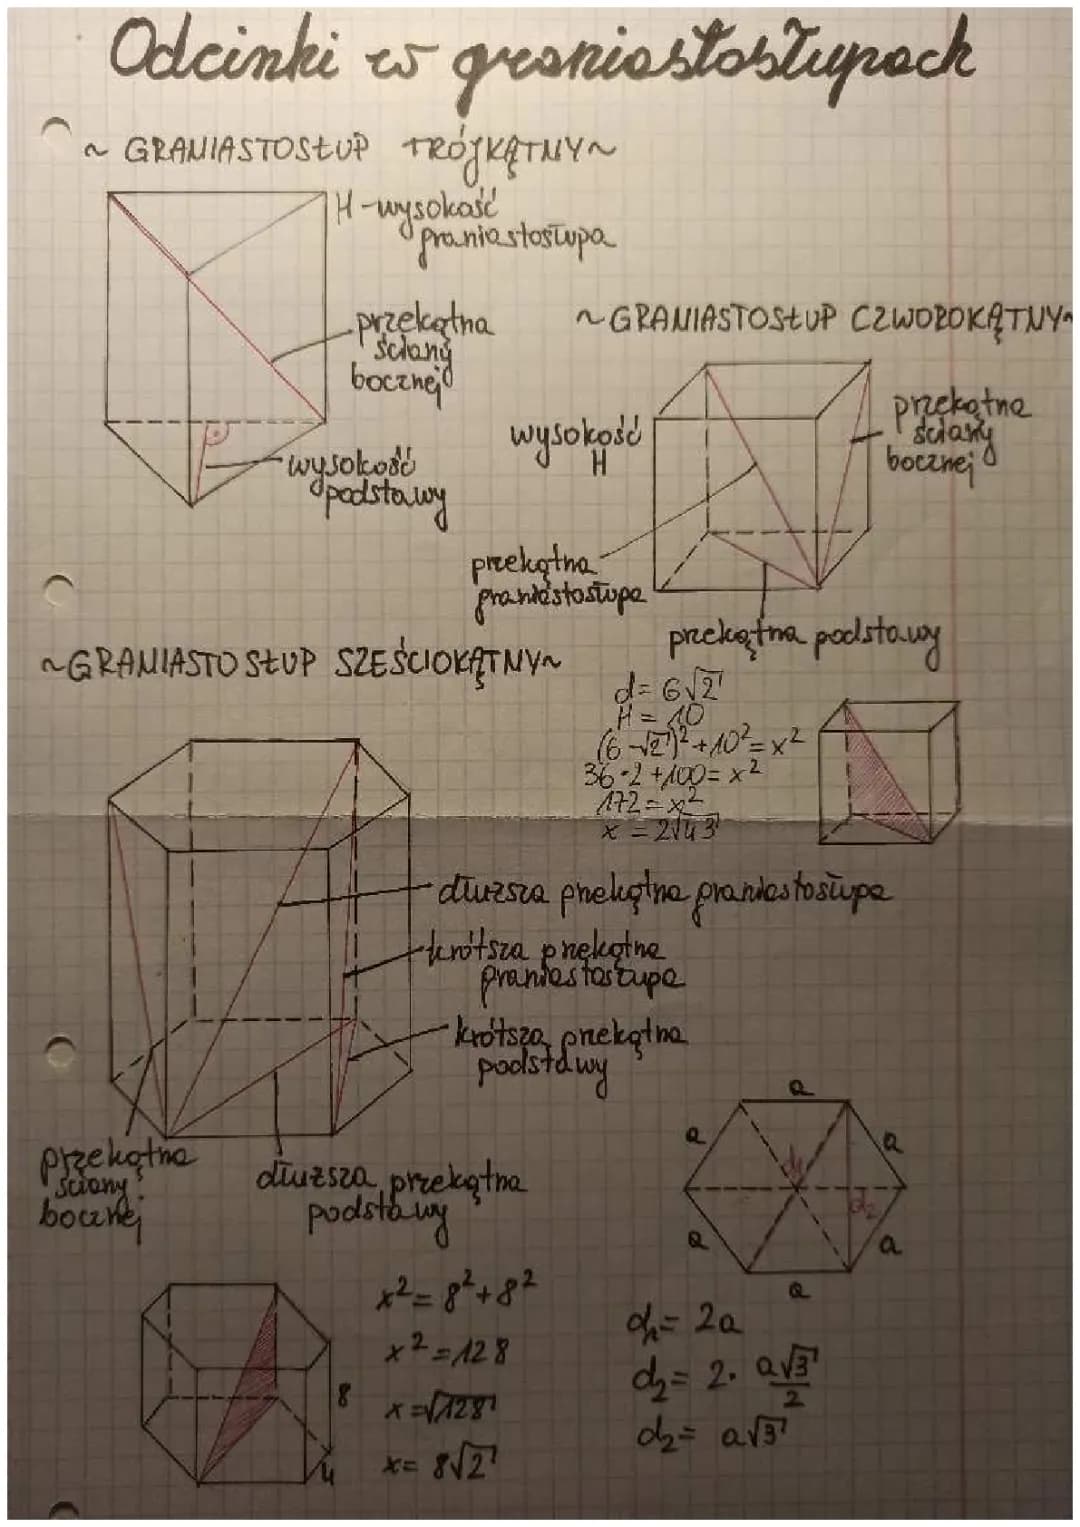 Odcinki w graniastosłupach
~ GRANIASTOSŁUP TRÓJKĄTNY ~
H - wysokość
graniastosłupa
przekątna
ściany
bocznej
wysokość
podstawy
~ GRANIASTOSŁUP CZWOROKĄTNY ~
wysokość
H
przekątna
ściany
bocznej
przekątna
graniastosłupa
przekątna podstawy
~ GRANIASTOSŁUP SZEŚCIOKĄTNY ~
d = 6√2
H = 10
(6√2)² + 10² = x²
36·2 + 100 = x²
172 = x²
x = 2√43
dłuższa przekątna graniastosłupa
krótsza przekątna
graniastosłupa
krótsza przekątna
podstawy
przekątna
ściany
bocznej
dłuższa przekątna
podstawy
a
a
a
d₁
d₂
a
a
a
8
4
x² = 8² + 8²
x² = 128
x = √128
x = 8√2
d₁ = 2a
d₂ = 2 · a√3/2
d₂ = a√3